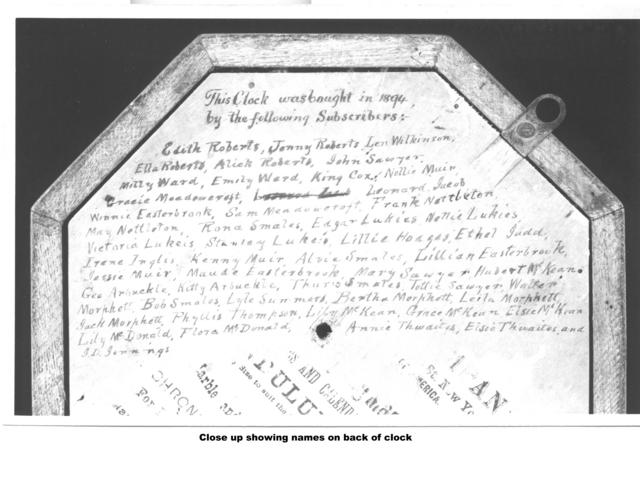 This Clock was bought in 1894,
by the following Subscribers:-
Edith Roberts, Jonny Roberts, Len Wilkinson,
Ella Roberts, Alick Roberts, John Sawyer,
Milly Ward, Emily Ward, King Cox, Nellie Muir,
Gracie Meadowcroft, Leonard Jacob
Winnie Easterbrook, Sam Meadowcroft, Frank Nottleton,
May Nottleton, Rona Smales, Edgar Lukies Nellie Lukies,
Victoria Lukeis, Stanley Lukeis, Lillie Hodges, Ethel Judd,
Irene Ingles, Kenny Muir, Alvie Smales, Lillian Easterbrook,
Jessie Muir, Maude Easterbrook, Mary Sawyer Hubert McKean.
Geo Arbuckle, Kitty Arbuckle, Smales, Tottie Sawyer, Walter
Morphett, Bob Smales, Lyle Summers, Bertha Morphett, Leila Morphett,
Jack Morphett, Phyllis Thompson, Lily McKean, Grace McKean Elsie McKean
Lily McDonald, Flora McDonald, Annie Thwaites, Elsie Thwaites, and
J.D. Jennings
CHRON
For
arble and
S AND CALEND
dise to suit the
TULU
SE NEW Y
AMERICA.
AN
Close up showing names on back of clock